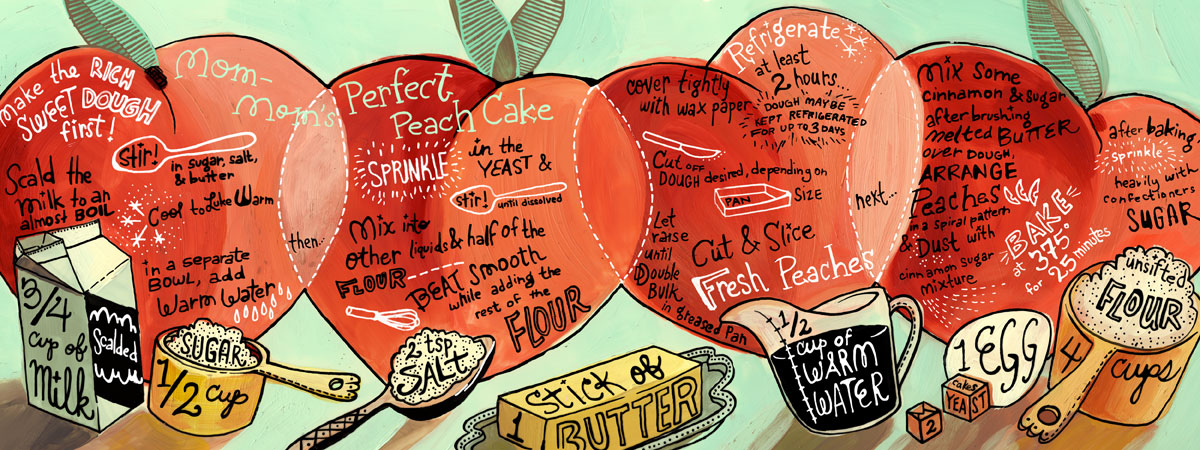 Mom-
Mom's
Perfect
Peach Cake
make
the RICH
SWEET DOUGH
first!
Stir!
in sugar, salt,
& butter
Scald the
milk to an
almost BOIL
Cool to Luke Warm
in a separate
BOWL, add
Warm Water
then...
SPRINKLE
in the
YEAST &
Stir!
until dissolved
Mix into
other liquids & half of the
FLOUR
BEAT SMOOTH
while adding the
rest of the
FLOUR
cover tightly
with wax paper
Refrigerate
at least
2 hours
DOUGH MAY BE
KEPT REFRIGERATED
FOR UP TO 3 DAYS
Cut OFF
DOUGH desired, depending on
PAN
SIZE
Let
raise
until
Double
Bulk
in greased Pan
Cut & Slice
Fresh Peaches
next...
Mix Some
cinnamon & sugar
after brushing
melted BUTTER
over DOUGH,
ARRANGE
Peaches
in a spiral pattern
& Dust with
cinnamon sugar
mixture
BAKE
at 375°
for 25 minutes
after baking
sprinkle
heavily with
confectioners
SUGAR
3/4
cup of
Milk
Scalded
SUGAR
1/2 cup
2 tsp
SALT
1 stick of
BUTTER
1/2
cup of
WARM
WATER
2
cakes
YEAST
1 EGG
unsifted
FLOUR
4 cups